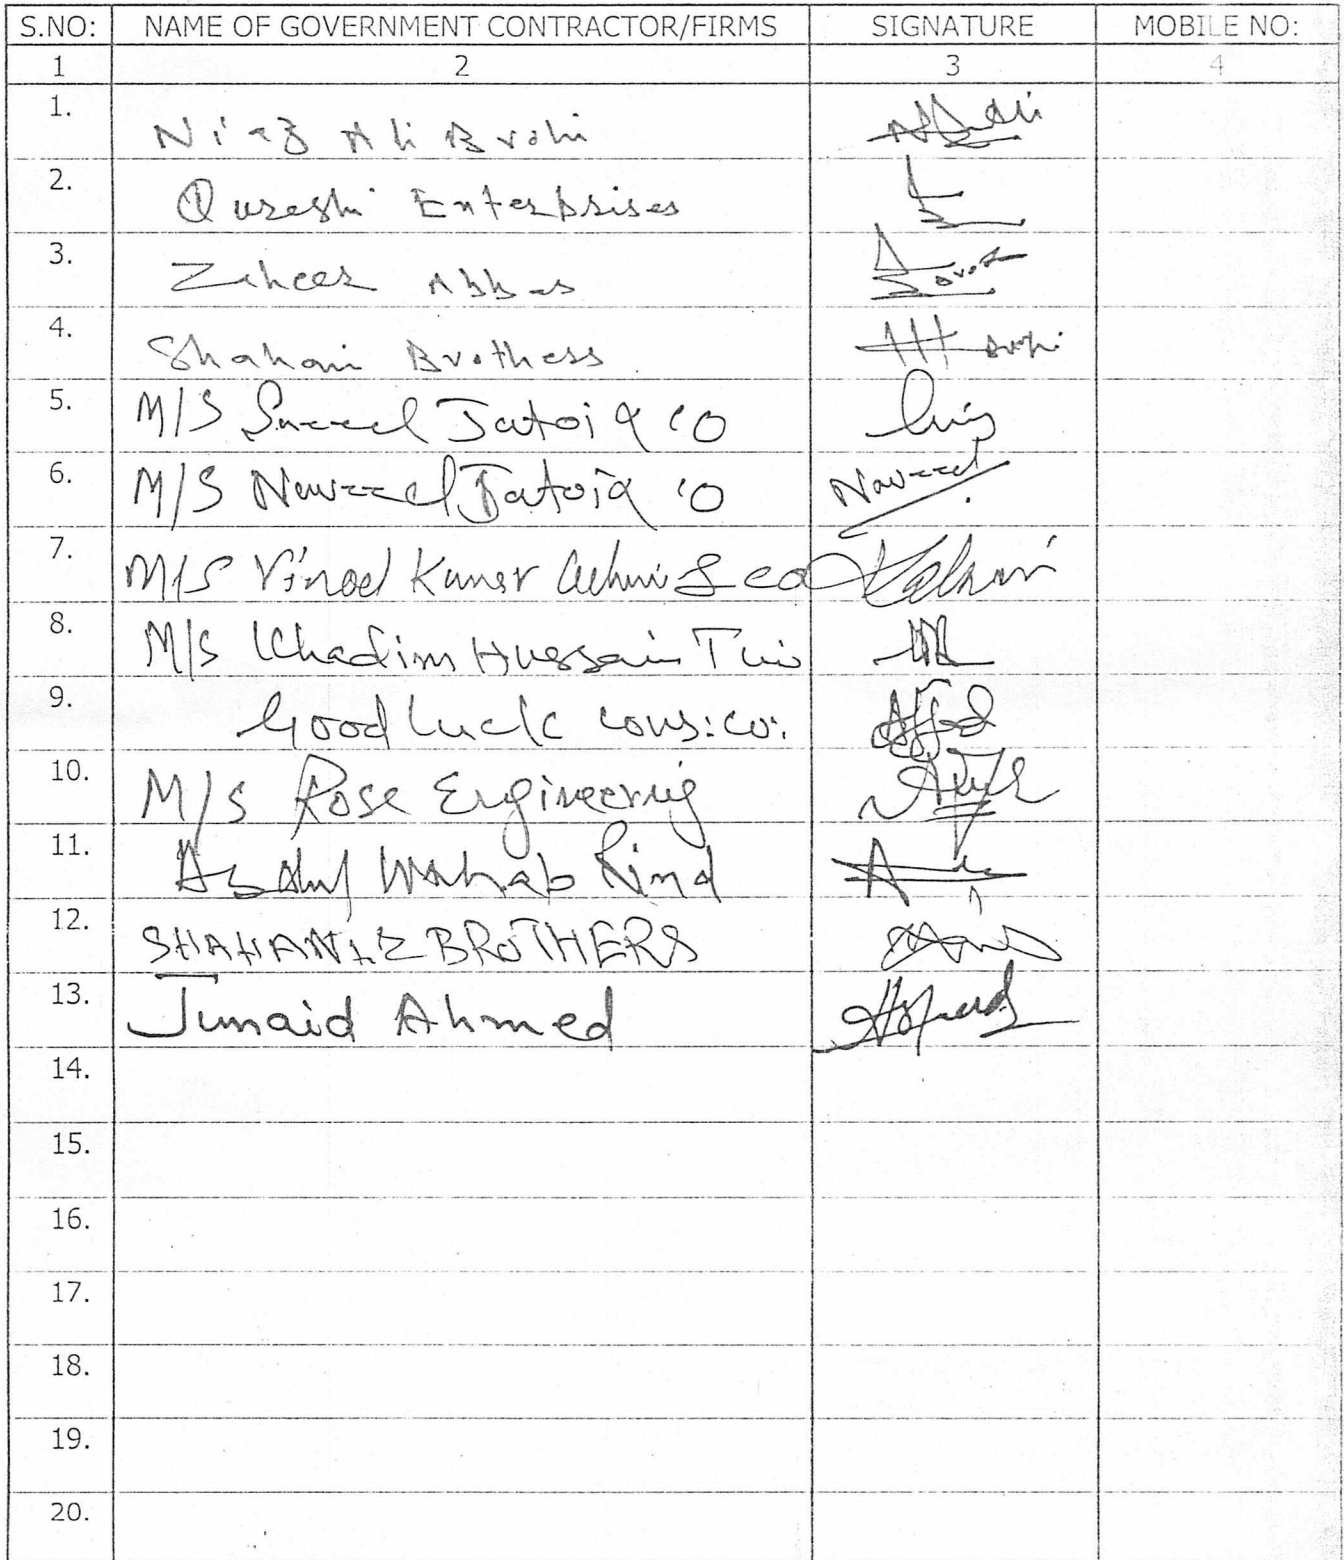 S.NO: NAME OF GOVERNMENT CONTRACTOR/FIRMS SIGNATURE MOBILE NO:
1 2 3 4
1. Niaz Ali Brohi
2. Qureshi Enterprises
3. Zaheer Abbas
4. Shahani Brothers
5. M/S Jatoi & CO
6. M/S Naveed Jatoi & CO Naveed
7. M/S Vinod Kumar & co
8. M/S Khadim Hussain
9. Good luck cons:co:
10. M/S Rose Engineering
11. Abdul Wahab Rind
12. BROTHERS
13. Junaid Ahmed
14.
15.
16.
17.
18.
19.
20.